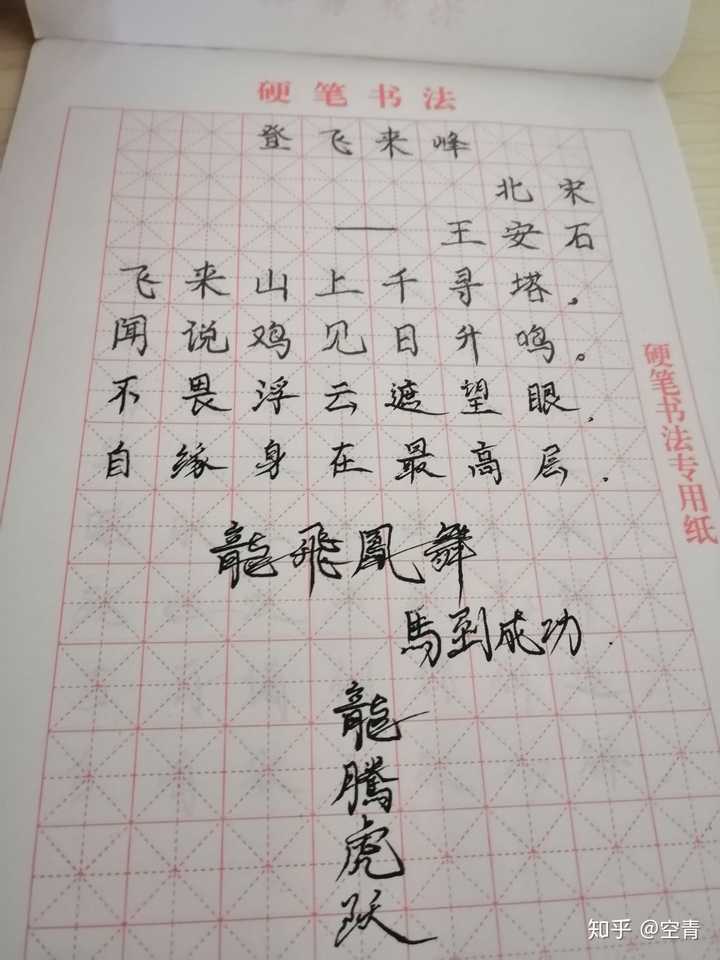 硬笔书法
登飞来峰
北宋
——王安石
飞来山上千寻塔。
闻说鸡见日升鸣。
不畏浮云遮望眼.
自缘身在最高层.
龍飛鳳舞
馬到成功.
龍騰虎跃
硬笔书法专用纸
知乎 @空青